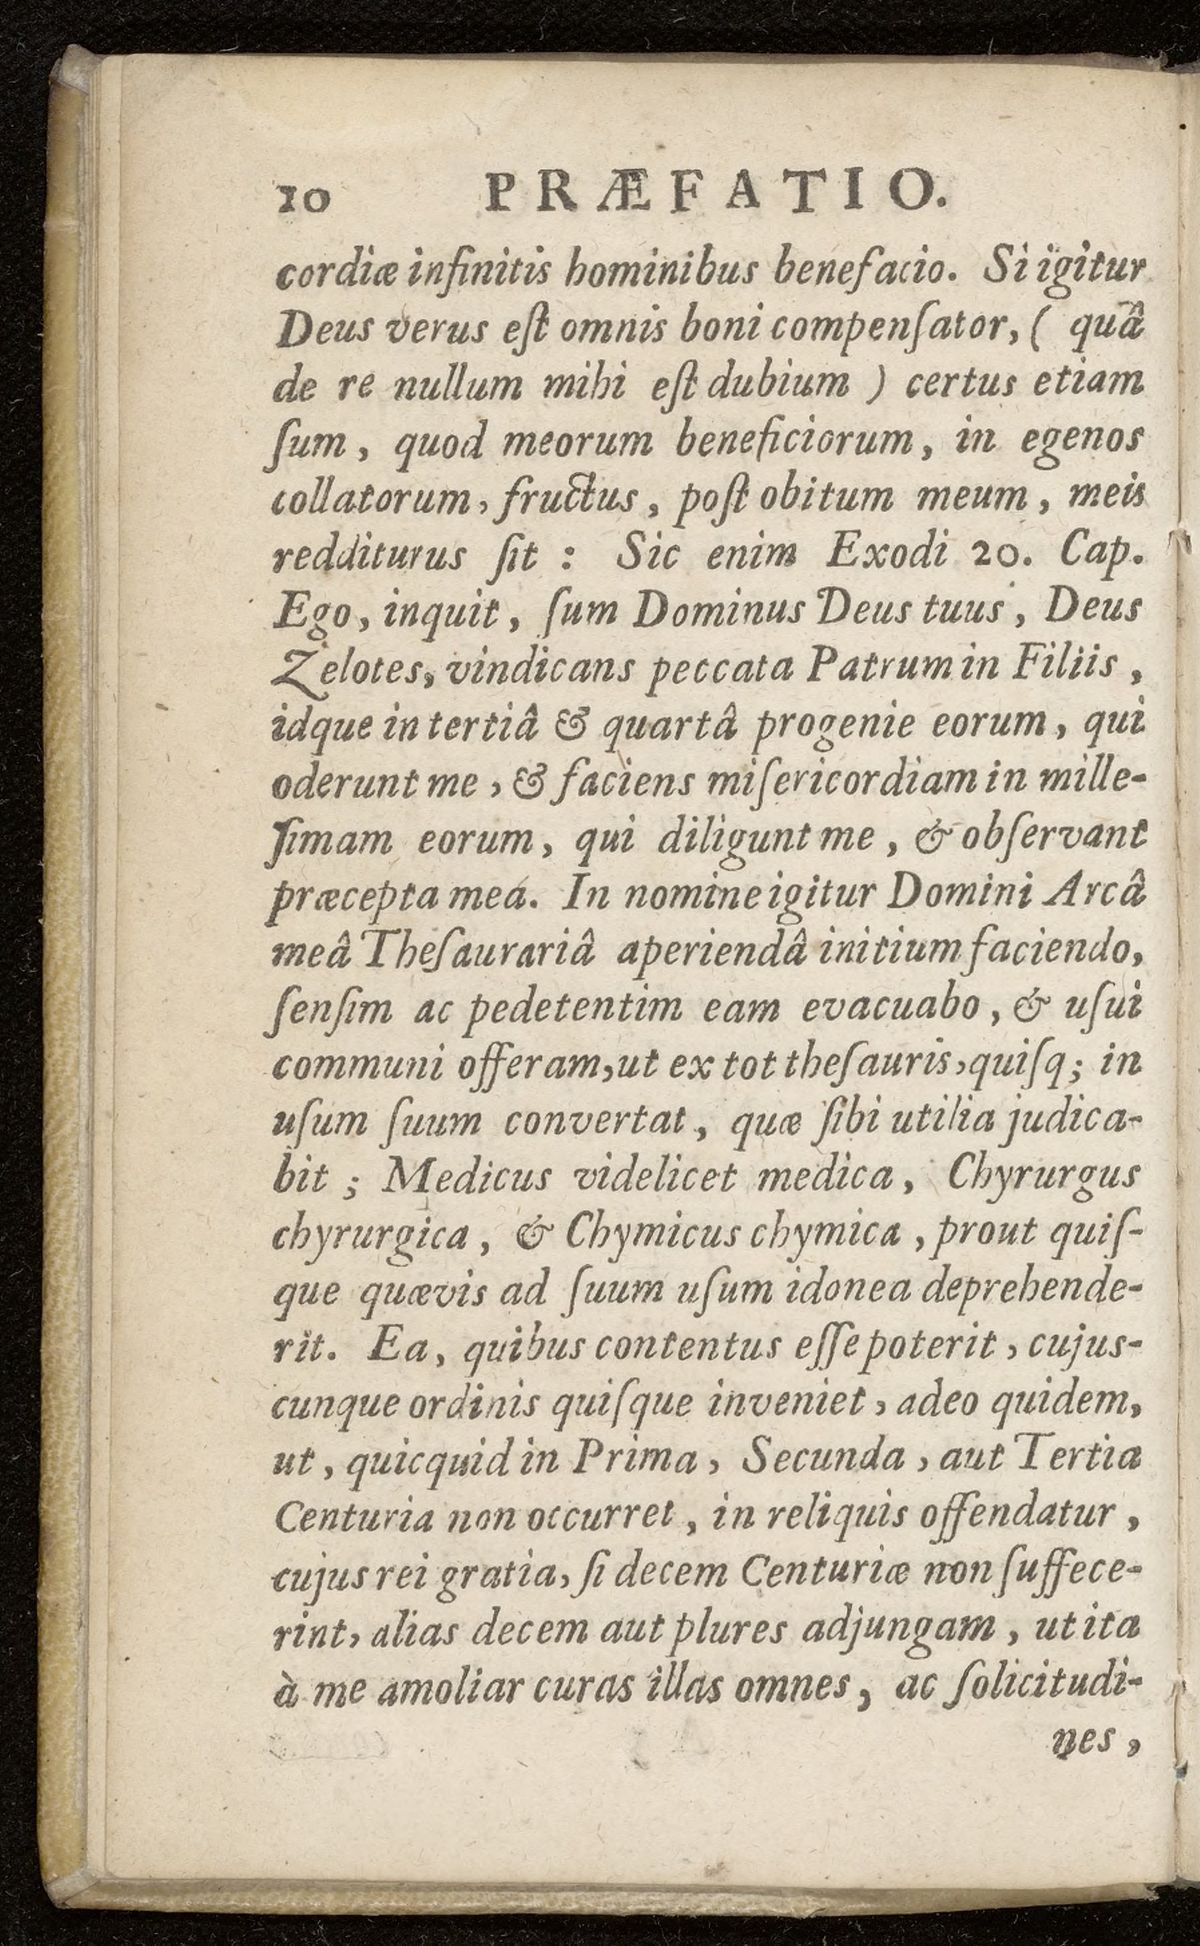 10 PRÆFATIO.
cordiæ infinitis hominibus benefacio. Si igitur
Deus verus eſt omnis boni compenſator, ( quâ
de re nullum mihi eſt dubium ) certus etiam
ſum, quod meorum beneficiorum, in egenos
collatorum, fructus, poſt obitum meum, meis
redditurus ſit : Sic enim Exodi 20. Cap.
Ego, inquit, ſum Dominus Deus tuus, Deus
Zelotes, vindicans peccata Patrum in Filiis,
idque in tertiâ & quartâ progenie eorum, qui
oderunt me, & faciens miſericordiam in mille-
ſimam eorum, qui diligunt me, & obſervant
præcepta mea. In nomine igitur Domini Arcâ
meâ Theſaurariâ aperiendâ initium faciendo,
ſenſim ac pedetentim eam evacuabo, & uſui
communi offeram, ut ex tot theſauris, quiſq; in
uſum ſuum convertat, quæ ſibi utilia judica-
bit ; Medicus videlicet medica, Chyrurgus
chyrurgica, & Chymicus chymica, prout quiſ-
que quævis ad ſuum uſum idonea deprehende-
rit. Ea, quibus contentus eſſe poterit, cujus-
cunque ordinis quiſque inveniet, adeo quidem,
ut, quicquid in Prima, Secunda, aut Tertia
Centuria non occurret, in reliquis offendatur,
cujus rei gratia, ſi decem Centuriæ non ſuffece-
rint, alias decem aut plures adjungam, ut ita
à me amoliar curas illas omnes, ac ſolicitudi-
nes,